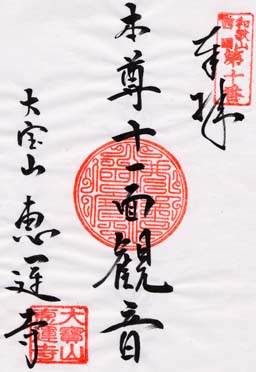 奉拝
和歌山
西國
第十番
本尊十一面観音
大宝山 恵運寺
大寶山
恵運寺